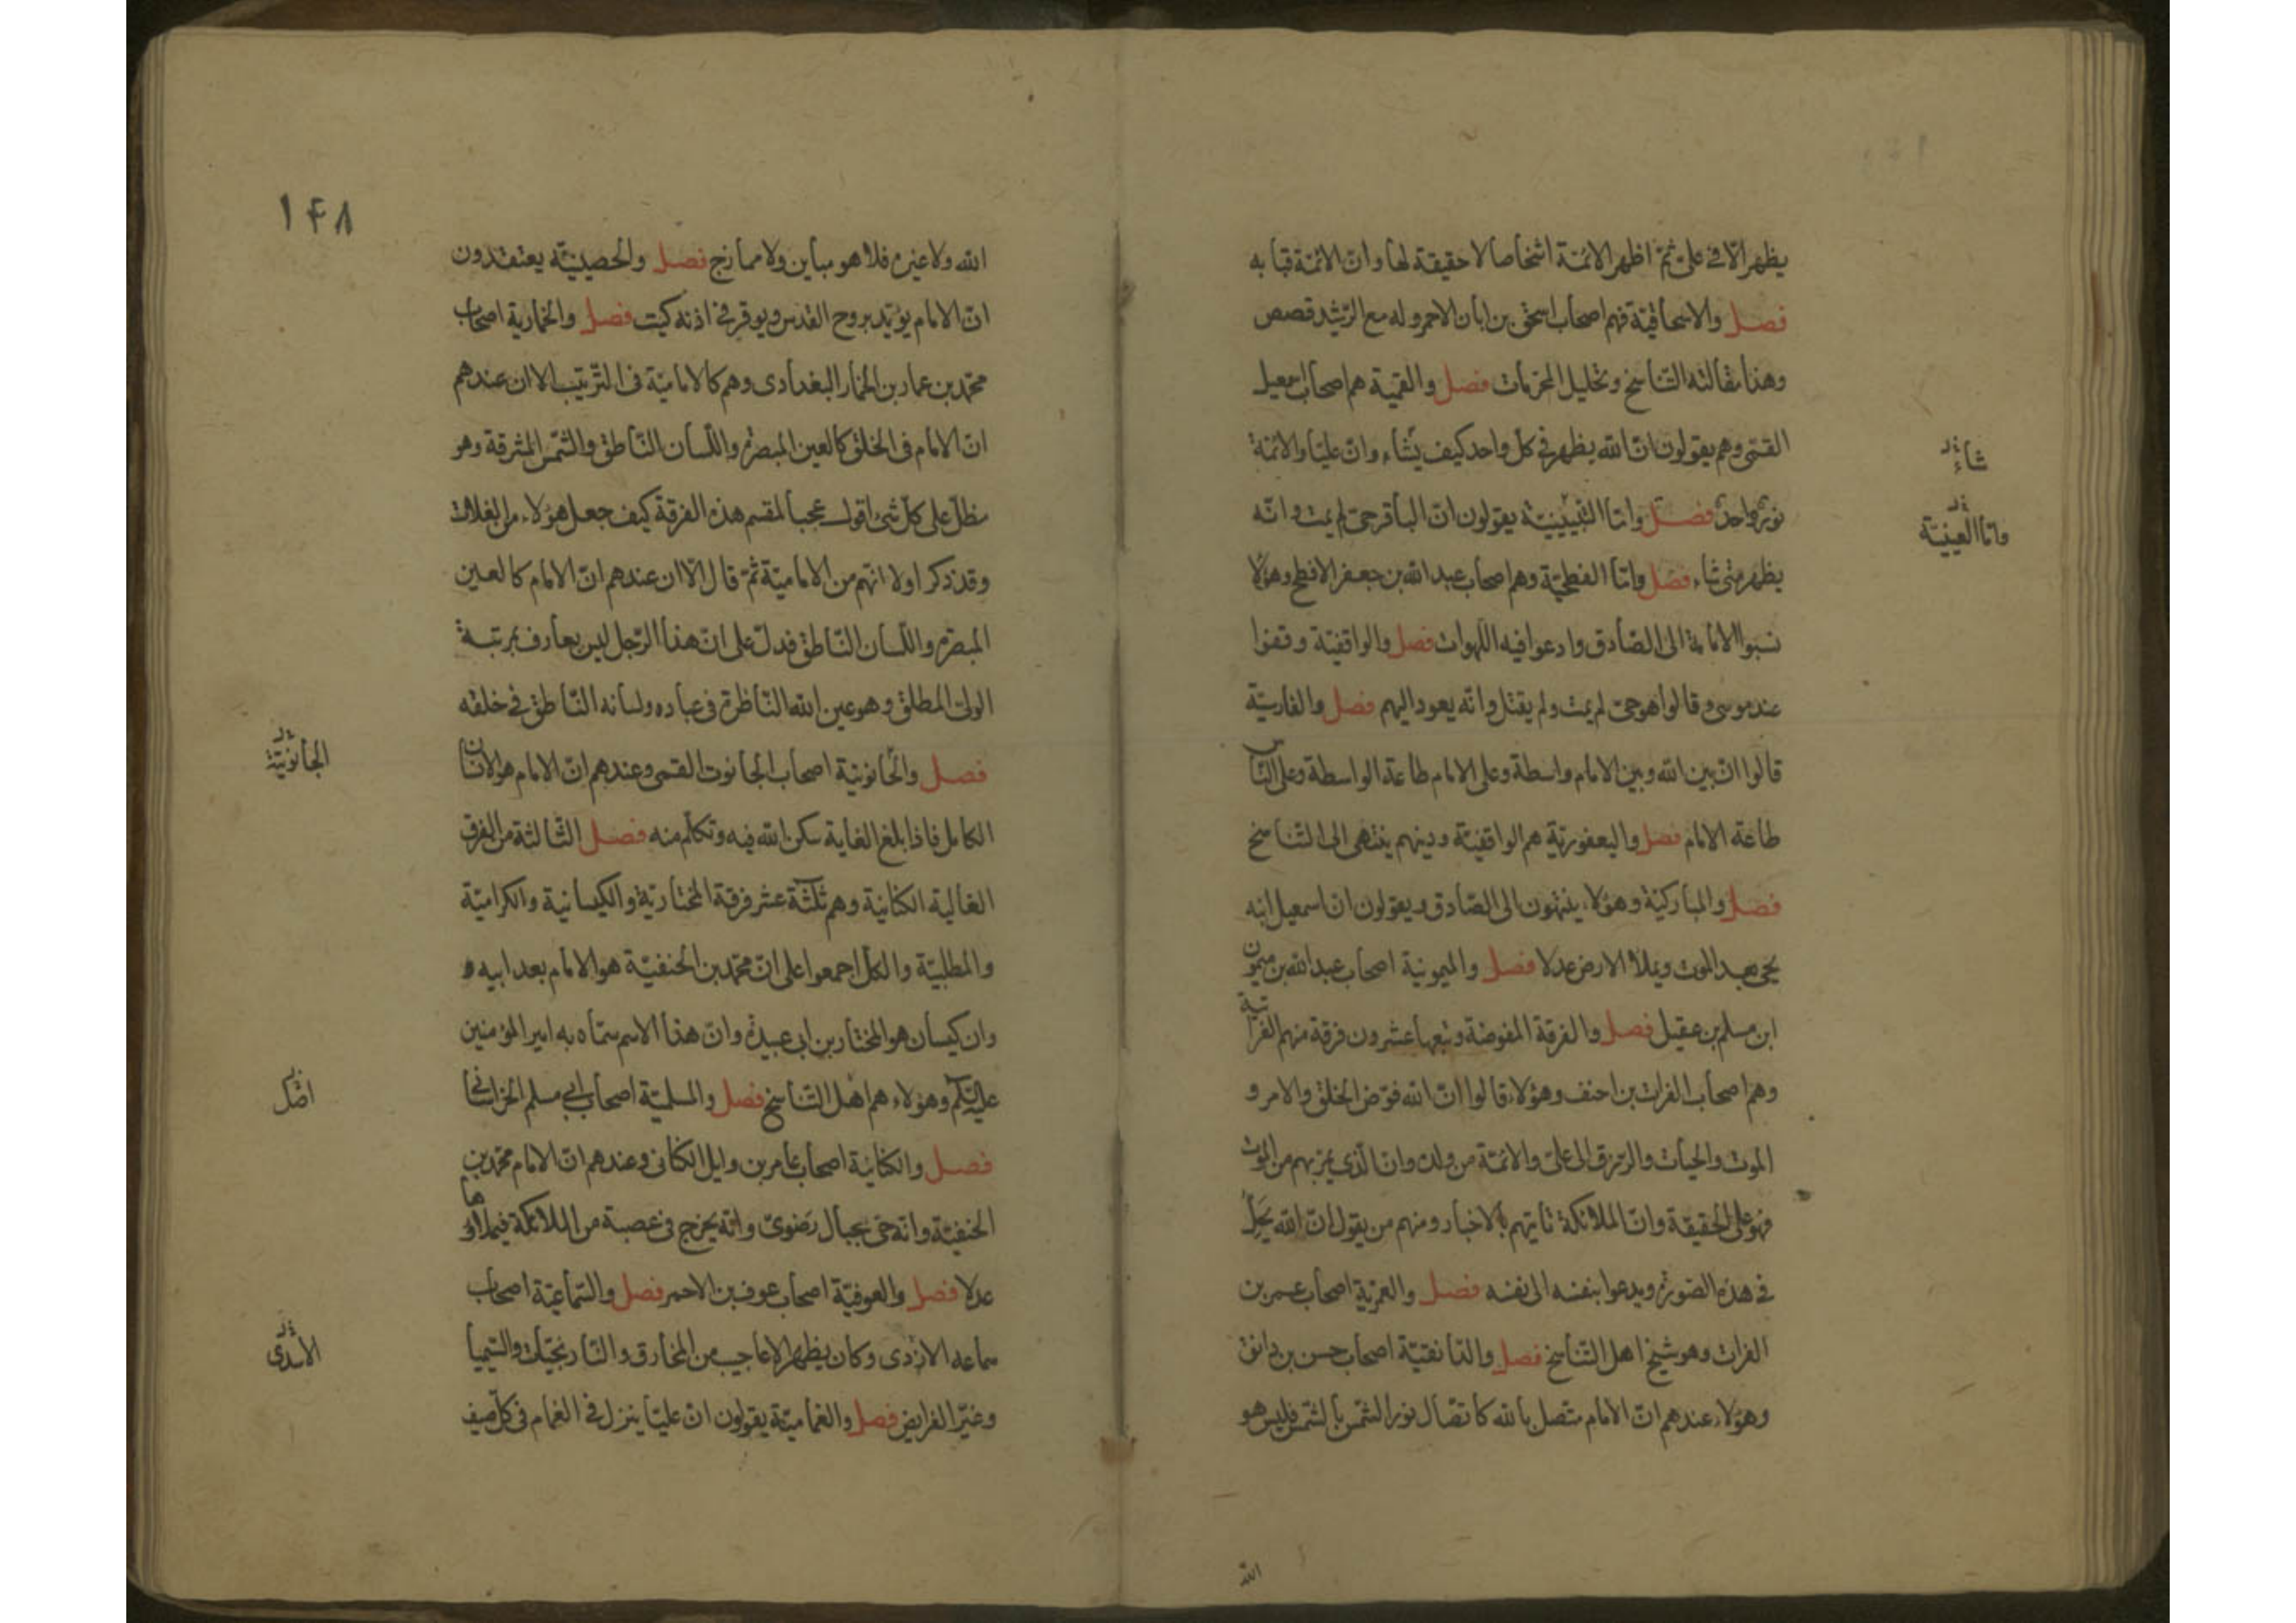 يظهر الّا فى علىّ ثمّ اظهر الائمّة اشخاصا لا حقيقة لها وانّ الائمّة قبابه
فصل والاسحاقيّة فهم اصحاب اسحق بن ابان الاحمر وله مع الرّشيد قصص
وهذا مقالته التّناسخ وتحليل المحرّمات فصل والقميّة هم اصحاب اسمعيل
القمّى وهم يقولون انّ الله يظهر فى كلّ واحد كيف يشاء وانّ عليّا والائمّة
شاء
نور واحد فصل وامّا يقولون انّ الباقر حىّ لم يمت وانّه
وامّا العينيّة
يظهر متى شاء فصل وامّا الفطحيّة وهم اصحاب عبد الله بن جعفر الافطح وهؤلا
نسبوا الامامة الى الصّادق وادعوا فيه اللهوات فصل والواقفيّة وقفوا
عند موسى وقالوا هو حىّ لم يمت ولم يقتل وانّه يعود اليهم فصل والفارسيّة
قالوا انّ بين الله وبين الامام واسطة وعلى الامام طاعة الواسطة وعلى النّاس
طاعة الامام فصل واليعفوريّة هم الواقفيّة ودينهم ينتهى الى التّناسخ
فصل والمباركيّة وهؤلاء ينتهون الى الصّادق ويقولون انّ اسمعيل ابنه
يحيى بعد الموت ويملأ الارض عدلا فصل والميمونية اصحاب عبد الله بن ميمون
ابن مسلم بن عقيل فصل والفرقة المفوضة وتبعها عشرون فرقة منهم الفراتية
وهم اصحاب الفرات بن احنف وهؤلاء قالوا انّ الله فوّض الخلق والامر و
الموت والحيات والرّزق الى علىّ والائمّة من ولده وانّ الّذى يمرّ بهم من الموت
فهو على الحقيقة وانّ الملائكة تاتيهم بالاخبار ومنهم من يقول انّ الله يحلّ
فى هذه الصّورة ويدعوا بنفسه الى نفسه فصل والعمرية اصحاب عمر بن
الفرات وهو شيخ اهل التّناسخ فصل والدّانقيّة اصحاب حسن بن دانق
وهؤلاء عندهم انّ الامام متّصل بالله كاتصال نور الشّمس بالشّمس فليس هو
الله
١۴٨
الله ولا غيره فلا هو مباين ولا ممازج فصل والحصينيّه يعتقدون
انّ الامام يؤيّد بروح القدس ويوقر فى اذنه كيت فصل والخمارية اصحاب
محمّد بن عمار بن الخمار البغدادى وهم كالاماميّة فى التّرتيب الا ان عندهم
انّ الامام فى الخلق كالعين المبصرة واللّسان النّاطق والشّمس المشرقة وهو
مظلّ على كلّ شئ اقول عجبا لمقسم هذه الفرقة كيف جعل هؤلاء من الغلات
وقد ذكر اولا انّهم من الاماميّة ثمّ قال الّا ان عندهم انّ الامام كالعين
المبصرة واللّسان النّاطق فدلّ على انّ هذا الرّجل ليس بعارف بمرتبة
الولىّ المطلق وهو عين الله النّاظرة فى عباده ولسانه النّاطق فى خلقه
فصل والحانونيّة اصحاب الجانوت القمى وعندهم انّ الامام هو الانسان
الجانونيّة
الكامل فاذا بلغ الغاية سكن الله فيه وتكلّم منه فصل الثّالثة من الفرق
الغالية الكنانيّة وهم ثلثة عشر فرقة المختاريّة والكيسانية والكراميّة
والمطلبيّة والكلّ اجمعوا على انّ محمّد بن الحنفيّة هو الامام بعد ابيه و
وان كيسان هو المختار بن ابى عبيدة وانّ هذا الاسم سمّاه به امير المؤمنين
عليه السّلم وهؤلاء هم اهل التّناسخ فصل والمسلميّة اصحاب ابى مسلم الخراسانى
فصل والكنانيّة اصحاب عامر بن وايل الكنانى وعندهم انّ الامام محمّد بن
الحنفيّة وانّه حىّ بجبال رضوى وانّه يخرج فى عصبة من الملائكة فيملأها
عدلا فصل والعوفيّة اصحاب عوف بن الاحمر فصل والسّماعيّة اصحاب
سماعه الازدى وكان يظهر الاعاجيب من المخارق والنّارنجيّات والسّيميا
الاسدى
وغيّر الفرايض فصل والغماميّة يقولون انّ عليّا ينزل فى الغمام فى كلّ صيف